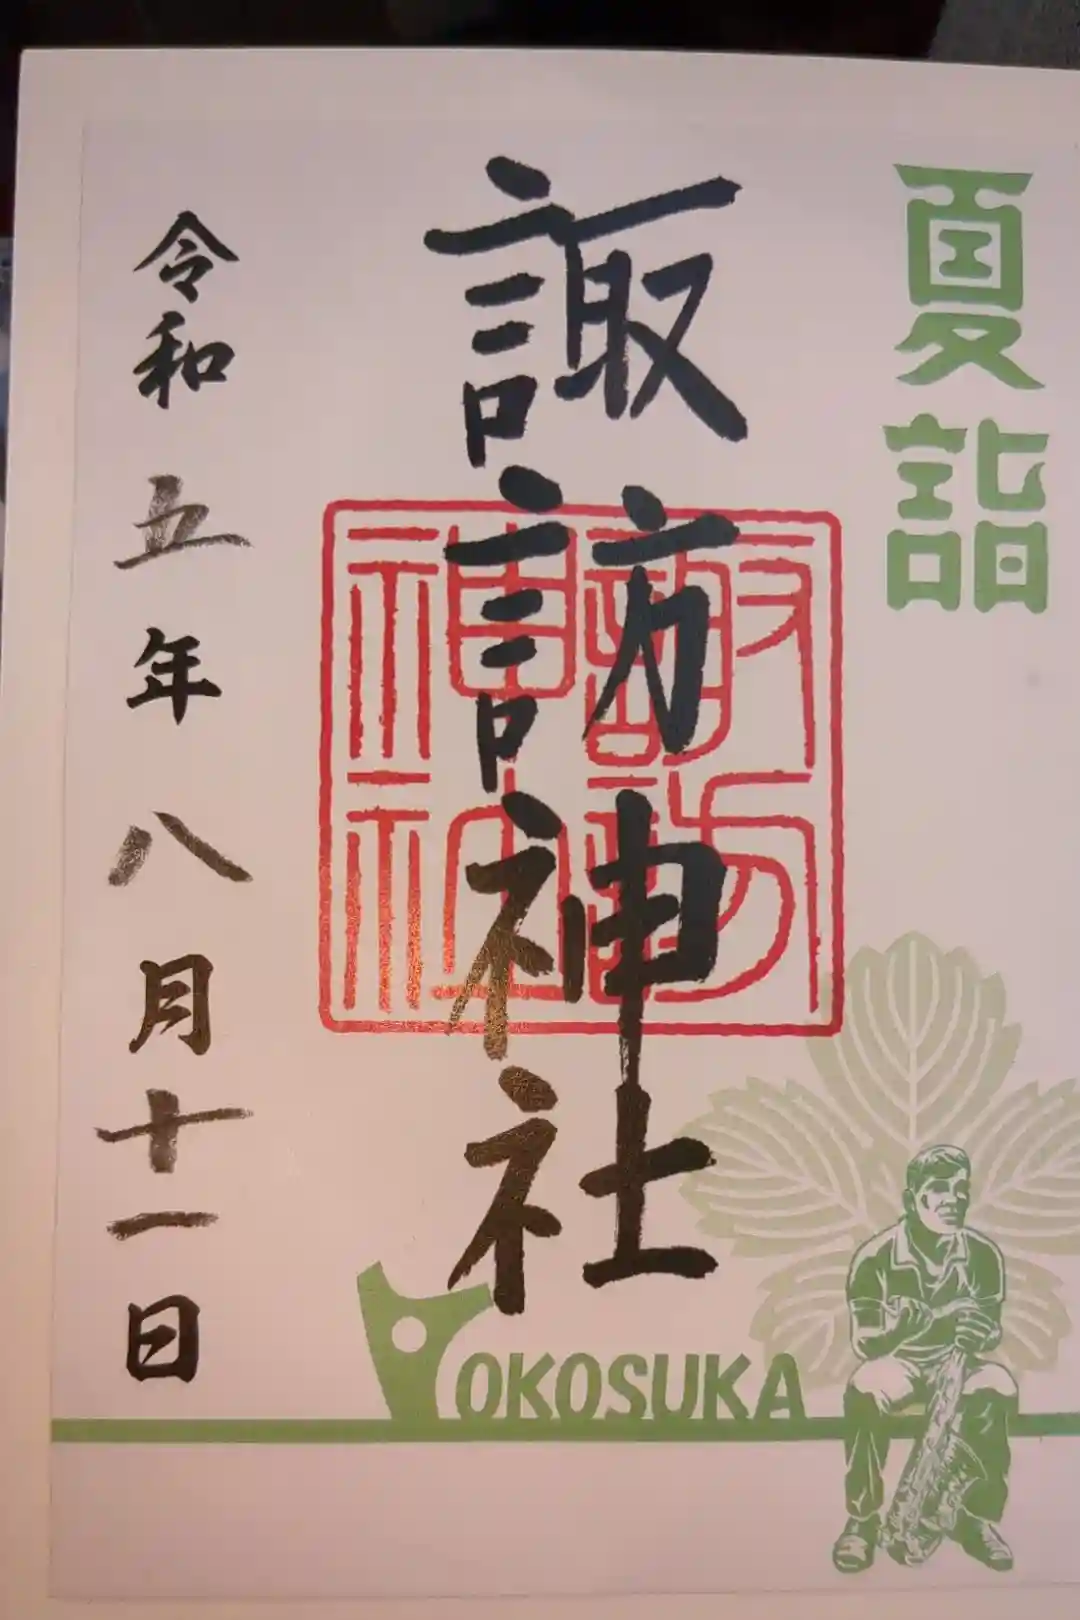 夏詣
諏訪神社
諏訪
神社
令和五年八月十一日
YOKOSUKA